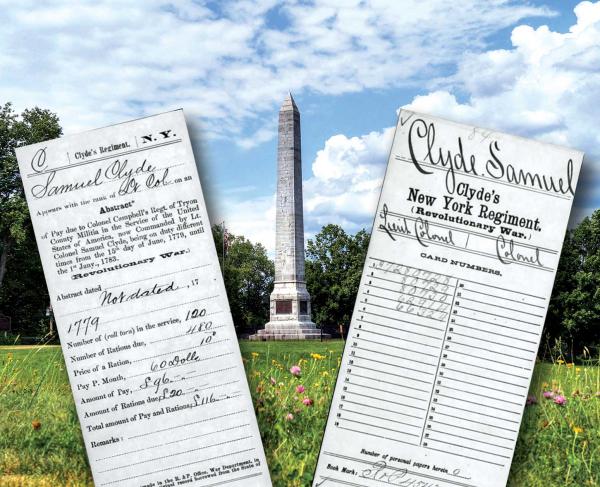 C | Clyde's Regiment. | N.Y.
Samuel Clyde
Appears with the rank of Lt Col on an
Abstract*
of Pay due to Colonel Campbell's Regt. of Tryon
County Militia in the Service of the United
States of America, now Commanded by Lt.
Colonel Samuel Clyde, being on duty different
times from the 15th day of June, 1779, until
the 1st Jany., 1783.
(Revolutionary War.)
Abstract dated Not dated, 17
1779
Number of (roll turn) in the service, 120
Number of Rations due, 480
Price of a Ration, 10
Pay P. Month, 60 Dolls
Amount of Pay, $96
Amount of Rations due, $20
Total amount of Pay and Rations, $116
Remarks:
made in the R. & P. Office, War Department, in
record borrowed from the State of
Clyde, Samuel
Clyde's
New York Regiment.
(Revolutionary War.)
Lieut Colonel | Colonel
CARD NUMBERS.
1
2
3
4
5
6
7
8
9
10
11
12
13
14
15
16
17
18
19
20
21
22
23
24
25
26
27
28
Number of personal papers herein 0
Book Mark: